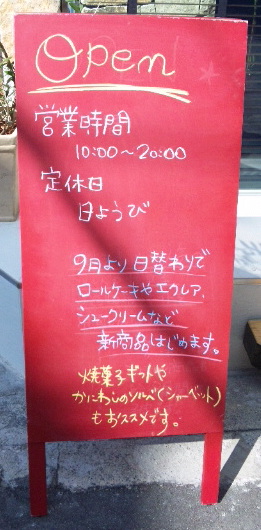 Open
営業時間
10:00〜20:00
定休日
日ようび
9月より日替わりで
ロールケーキやエクレア、
シュークリームなど
新商品はじめます。
焼菓子ギフトや
かにわしのソルベ(シャーベット)
もおススメです。